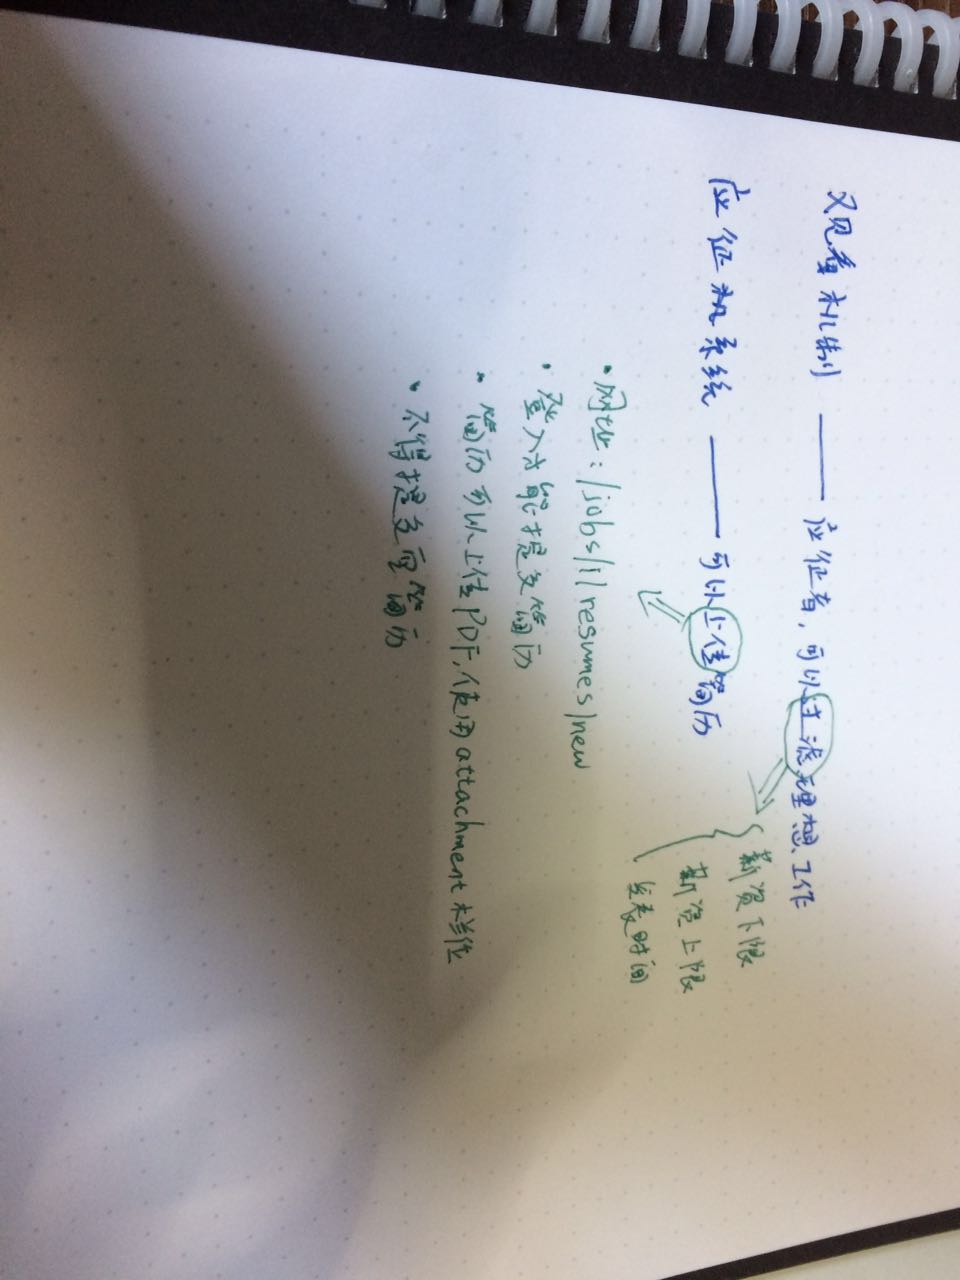 观看机制 —— 应征者，可以过滤理想工作
薪资下限
薪资上限
发表时间
应征机系统 —— 可以上传简历
• 网址：/jobs/1/resumes/new
• 登入才能提交简历
• 简历可以上传PDF，使用attachment栏位
• 不得提交空简历